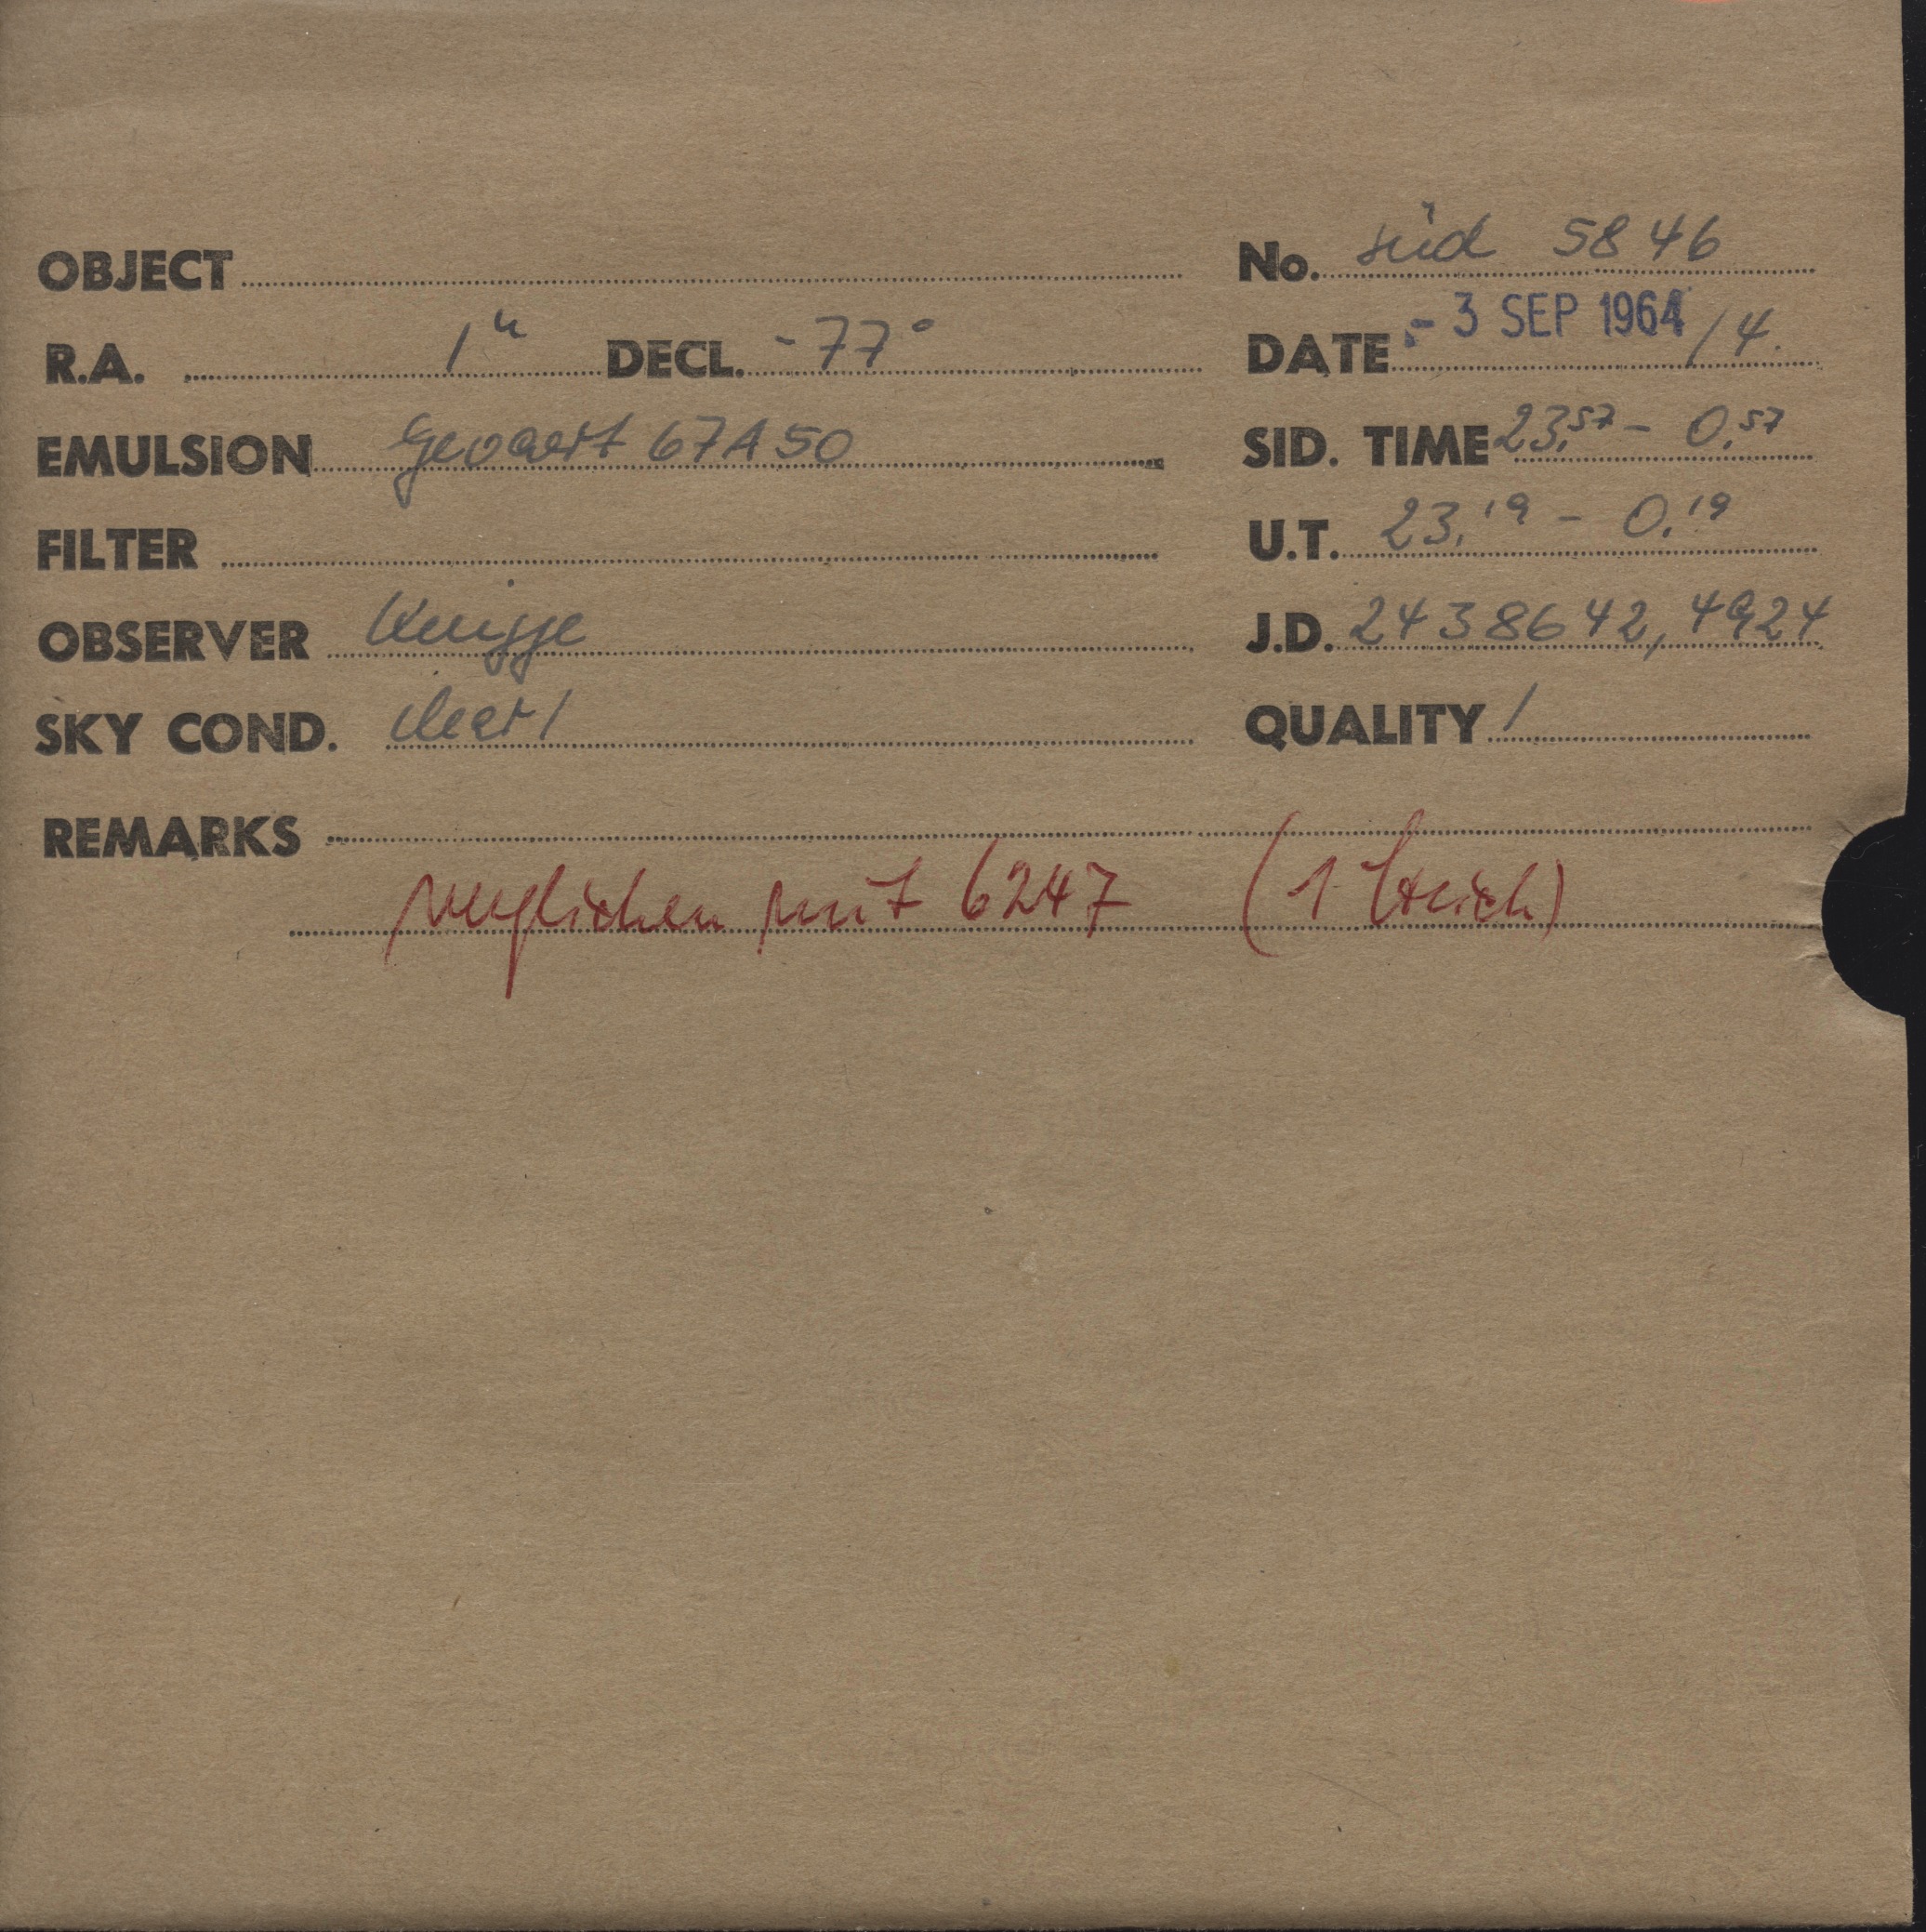 OBJECT No. süd 5846
R.A. 1h DECL. -77° DATE - 3 SEP 1964 /4.
EMULSION Gevaert 67A50 SID. TIME 23,57 - 0,57
FILTER U.T. 23,19 - 0,19
OBSERVER Knigge J.D. 2438642,4924
SKY COND. clear 1 QUALITY 1
REMARKS
verglichen mit 6247 (1 Strich)